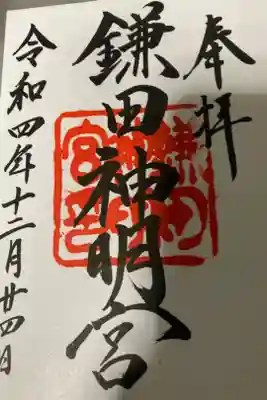 奉拝
鎌田神明宮
令和四年十二月廿四日